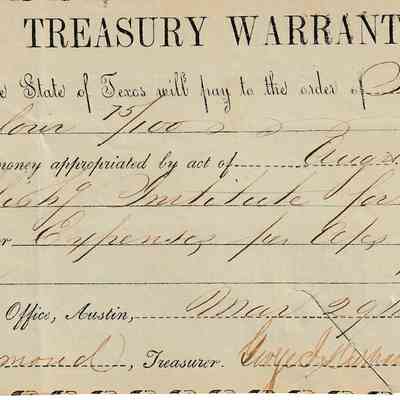 TREASURY WARRANT
State of Texas will pay to the order of
75/100
money appropriated by act of Aug
Institute for
Expenses per
Office, Austin, Mar 29th
mond, Treasurer.